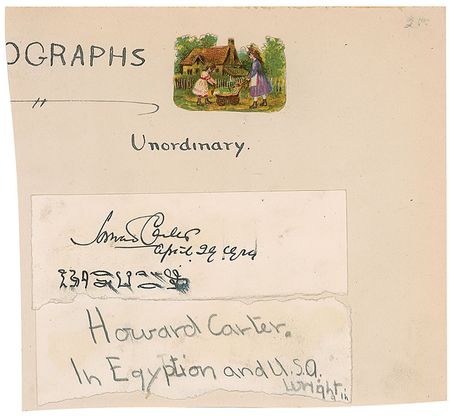 OGRAPHS
Unordinary.
Howard Carter
April 29 1924
Howard Carter.
In Egyption and U.S.A.